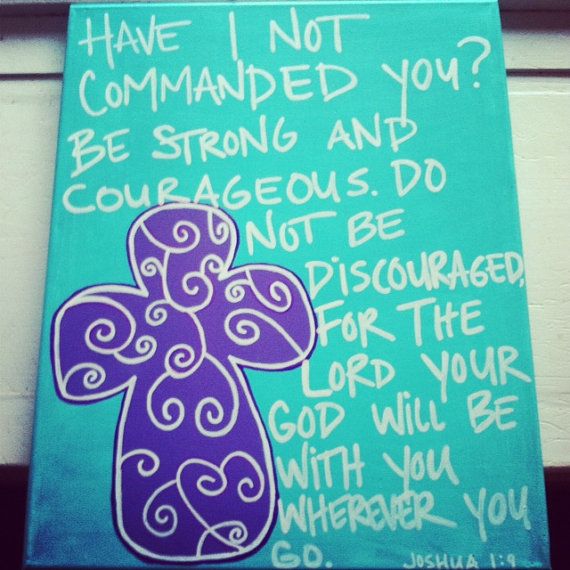 HAVE I NOT
COMMANDED YOU?
BE STRONG AND
COURAGEOUS. DO
NOT BE
DISCOURAGED,
FOR THE
LORD YOUR
GOD WILL BE
WITH YOU
WHEREVER YOU
GO.
JOSHUA 1:9